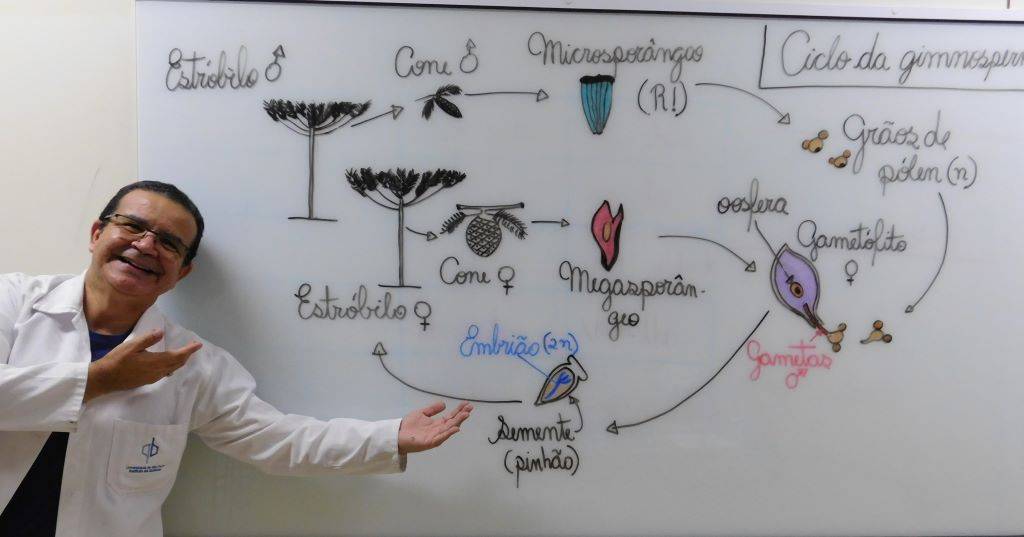 Ciclo da gimnosperm
Estróbilo ♂
Cone ♂
Microsporângeo
(R!)
Grãos de
pólen (n)
oosfera
Gametófito
♀
Cone ♀
Megasporân-
geo
Estróbilo ♀
Gametas
♂
Embrião (2n)
Semente
(pinhão)